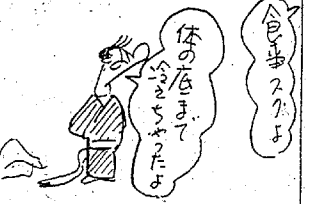 食事スグよ
体の底まで
冷えちゃったよ